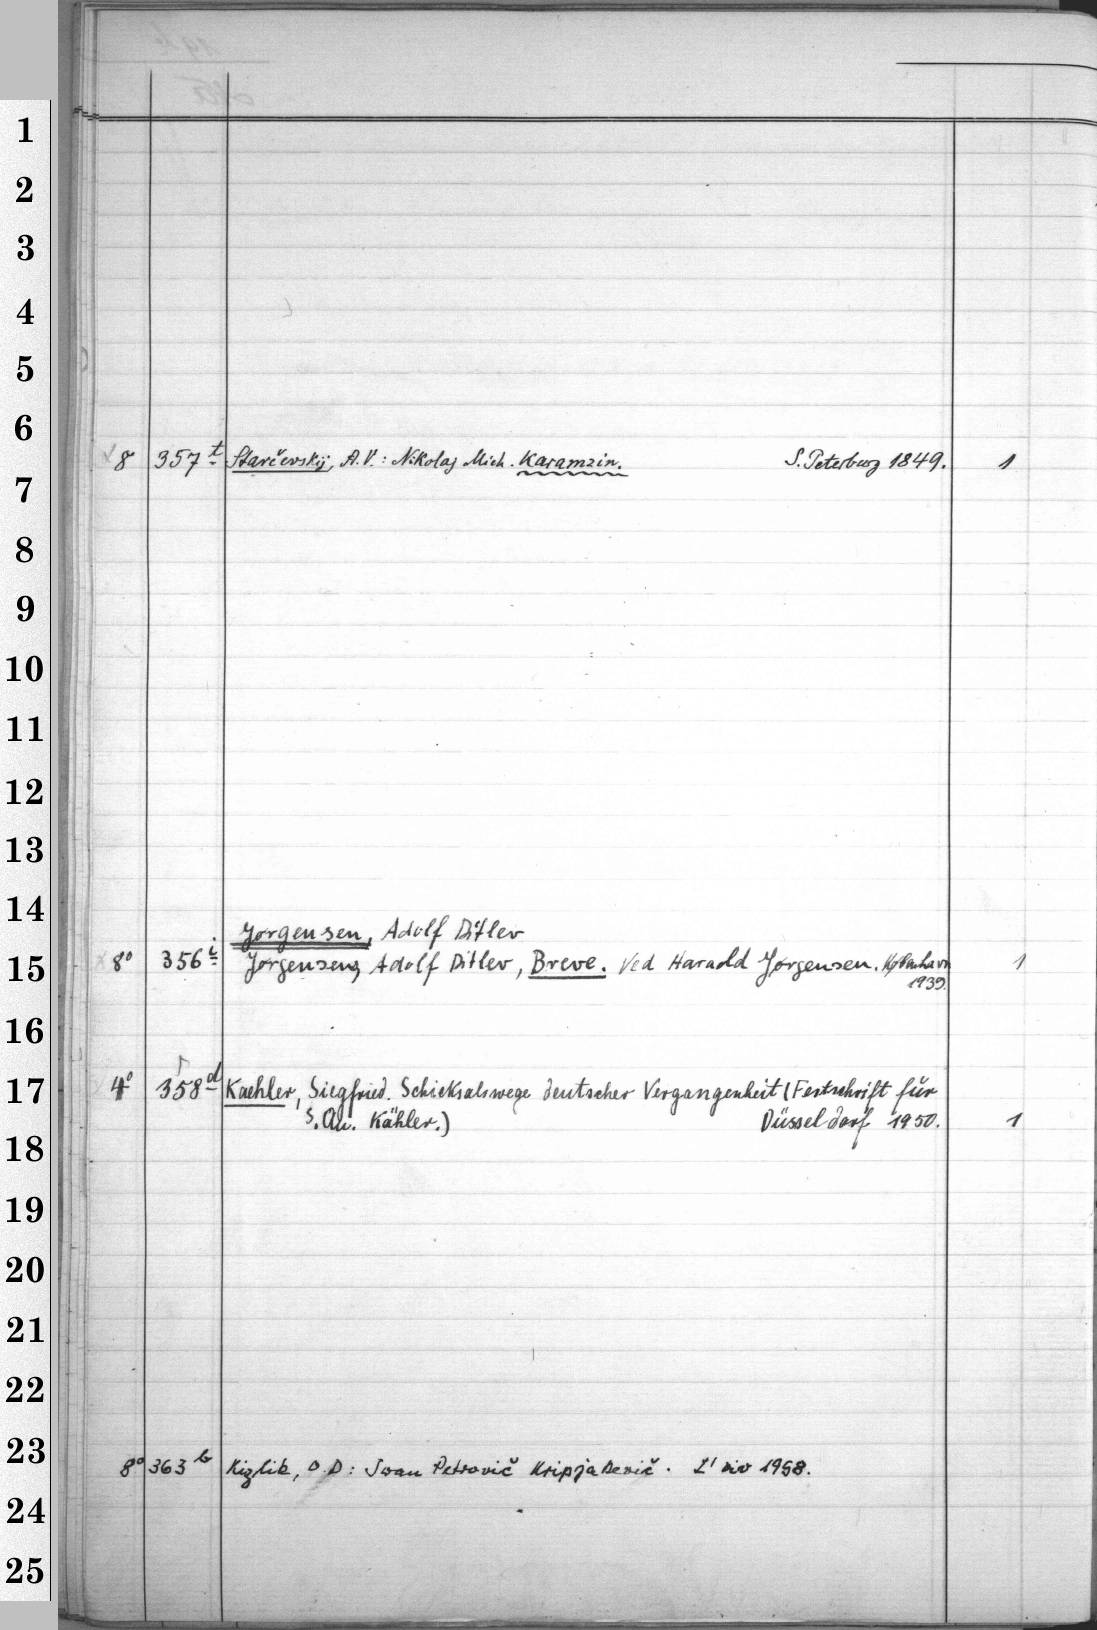 1
2
3
4
5
6
8 357 t Starčevskij, A.V.: Nikolaj Mich. Karamzin. S. Peterburg 1849. 1
7
8
9
10
11
12
13
14
Jørgensen, Adolf Ditlev
15 8° 356 i Jørgensen, Adolf Ditlev, Breve. Ved Harald Jørgensen. København 1
1939.
16
17 4° 358 d Kaehler, Siegfried. Schicksalswege deutscher Vergangenheit (Festschrift für
S. Kähler.) Düsseldorf 1950. 1
18
19
20
21
22
23 8° 363 b Kizlik, O.D: Ivan Petrovič Kripjakevič. L'viv 1958.
24
25